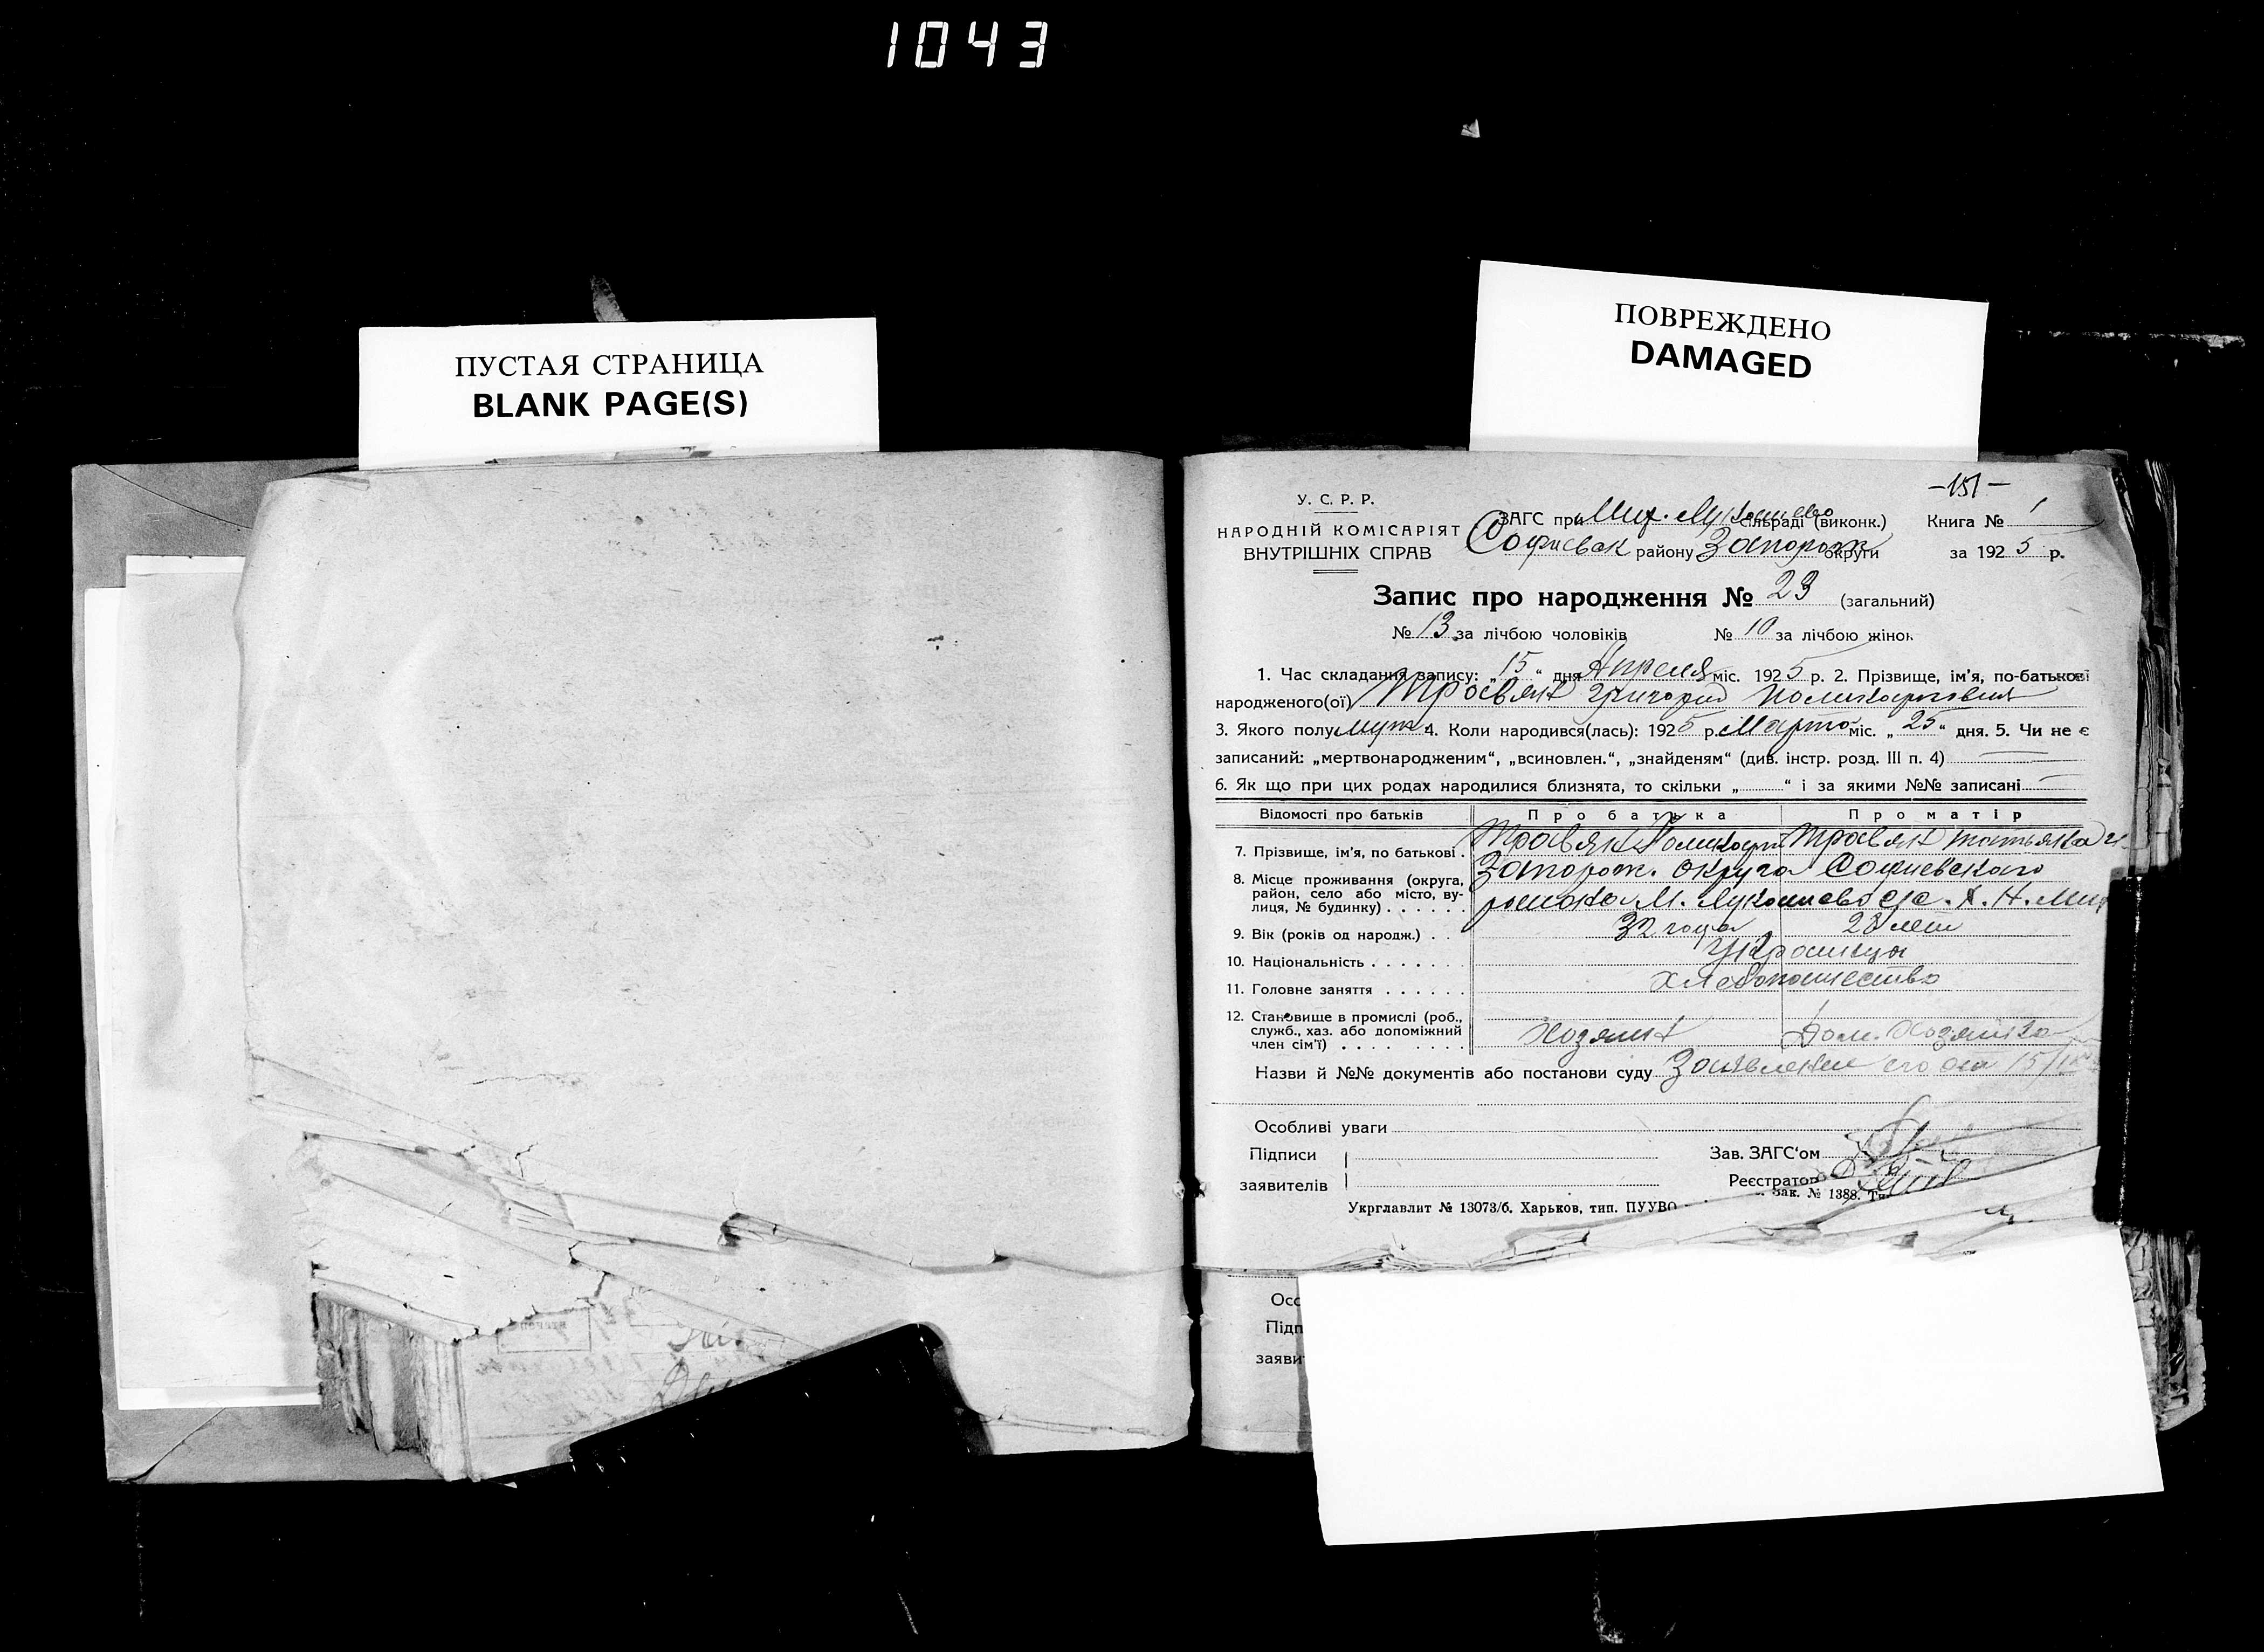 1043
ПУСТАЯ СТРАНИЦА
BLANK PAGE(S)
ПОВРЕЖДЕНО
DAMAGED
-151-
У. С. Р. Р.
НАРОДНІЙ КОМІСАРІЯТ
ВНУТРІШНІХ СПРАВ
ЗАГС при Мих. Лукашево сільраді (виконк.)
Софиевск району Запорож округи
Книга № 1
за 1925 р.
Запис про народження № 23 (загальний)
№ 13 за лічбою чоловіків № 10 за лічбою жінок
1. Час складання запису: „15“ дня Апреля міс. 1925 р. 2. Прізвище, ім'я, по-батькові
народженого(ої) Григорий Поликарпович
3. Якого полу муж 4. Коли народився(лась): 1925 р. Марта міс. „25“ дня. 5. Чи не є
записаний: „мертвонародженим“, „всиновлен.“, „знайденям“ (див. інстр. розд. III п. 4)
6. Як що при цих родах народилися близнята, то скільки „ “ і за якими №№ записані
Відомості про батьків Про батька Про матір
7. Прізвище, ім'я, по батькові . Поликарп Татьяна
8. Місце проживання (округа, район, село або місто, вулиця, № будинку) . . . . . . Запорож. округа Софиевского
района М. Лукашево
9. Вік (років од народж.) . . 32 года 28 лет
10. Національність . . . . . . Украинцы
11. Головне заняття . . . . . . Хлебопашество
12. Становище в промислі (роб., служб., хаз. або допоміжний член сім'ї) . . . . . . . Хозяин Дом. Хозяйка
Назви й №№ документів або постанови суду Заявление его от 15/IV
Особливі уваги
Підписи
заявителів
Зав. ЗАГС'ом
Реєстратор
Укрглавлит № 13073/б. Харьков, тип. ПУУВО
Зак. № 1388.
Осо
Підп
заяви